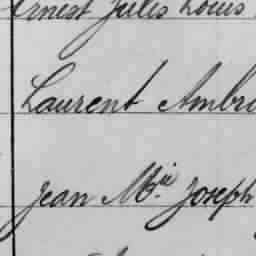 Ernest Jules Louis
Laurent Ambr
Jean Mie Joseph